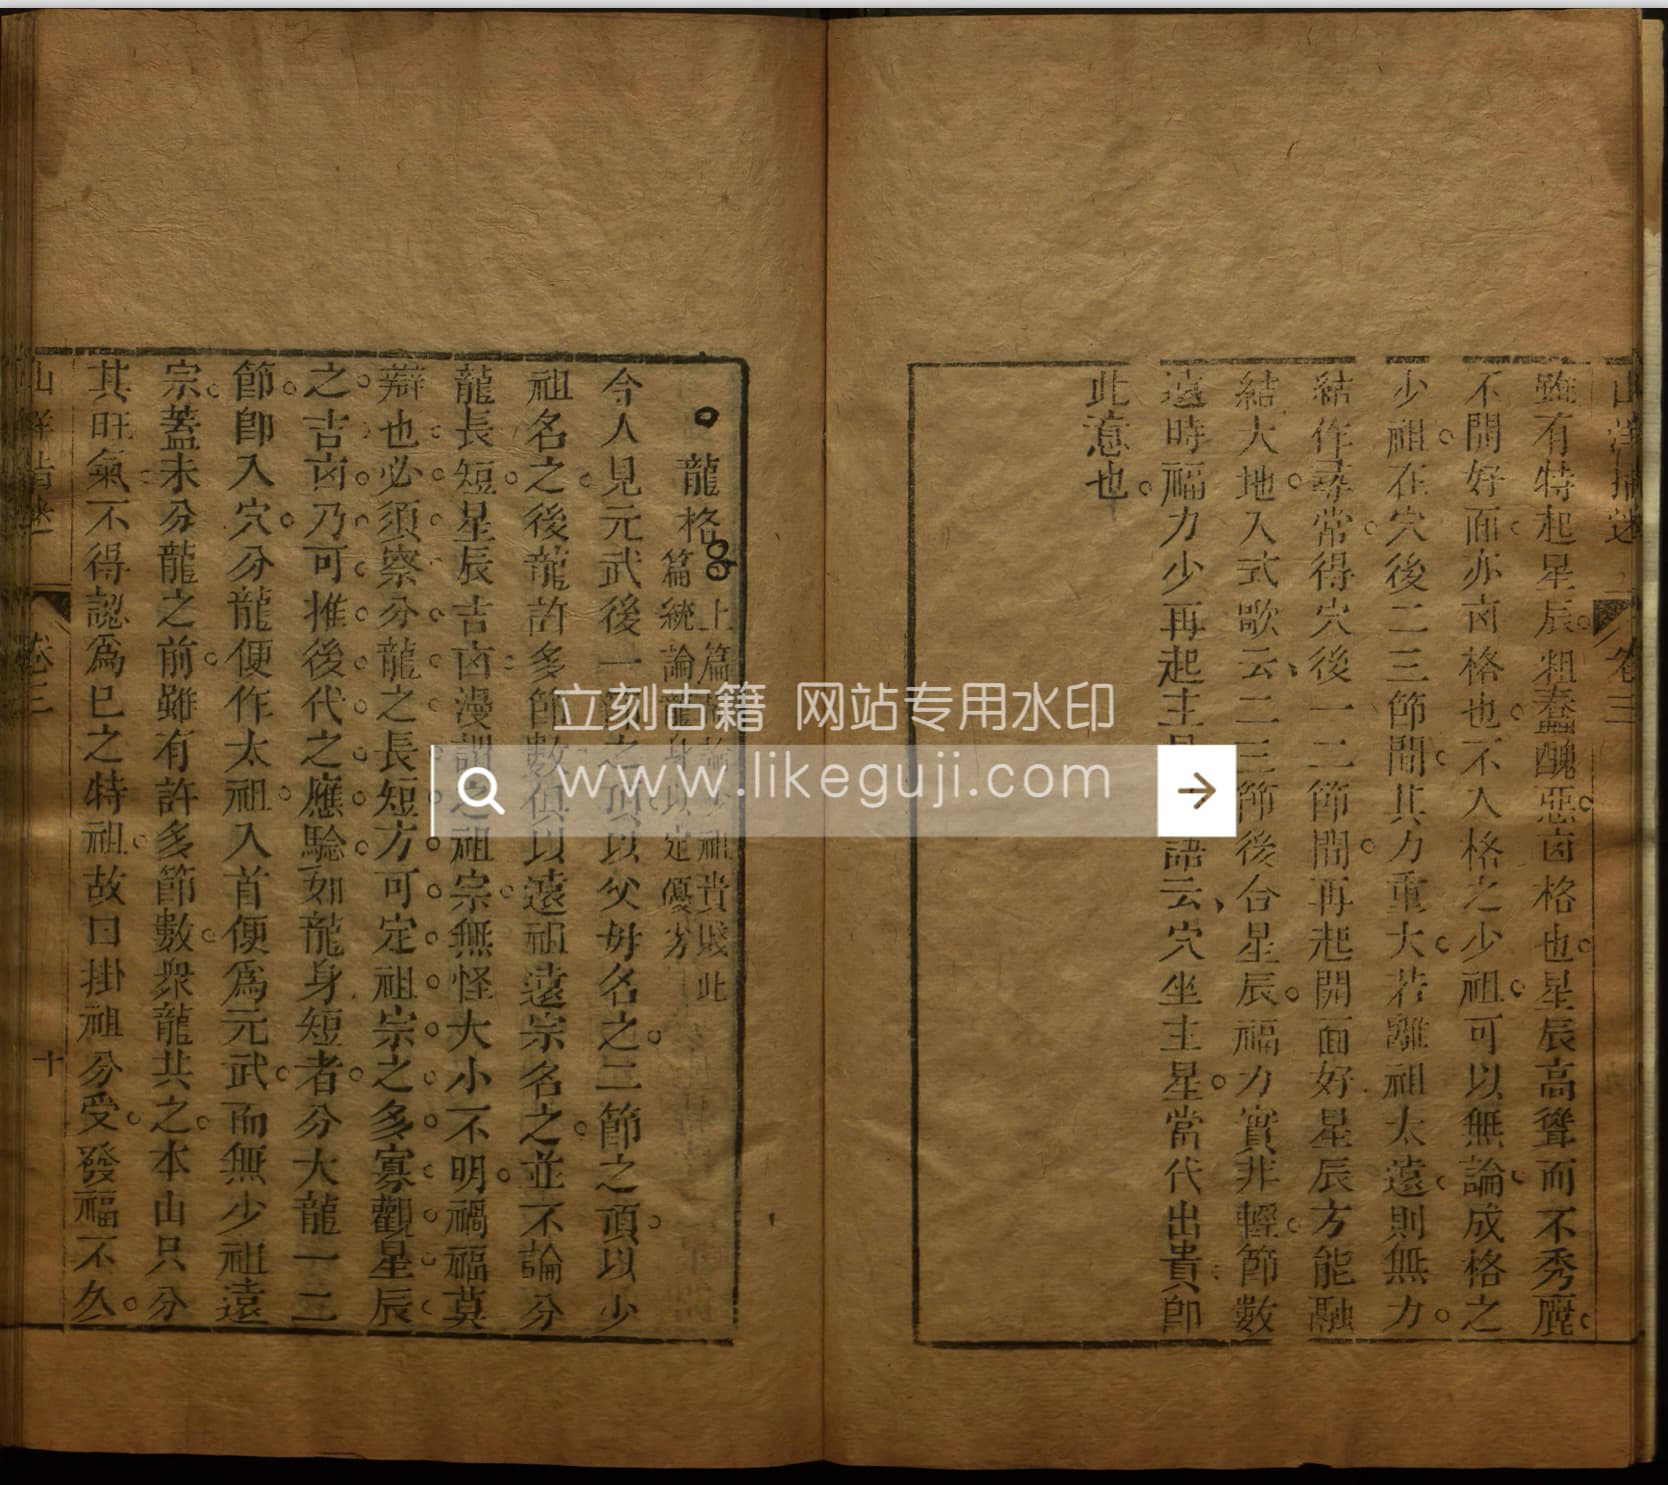 雖有特起星辰粗蠢醜惡卤格也星辰高聳而不秀麗
不開好面亦卤格也不入格之少祖可以無論成格之
少祖在穴後二三節間其力重大若離祖太遠則無力
結作尋常得穴後一二節間再起開面好星辰方能融
結大地入式歌云二三節後合星辰福力實非輕節數
遠時福力少再起主 語云穴坐主星當代出貴即
此意也
龍格
上篇 論少祖貴賤此
篇統論龍身以定優劣
今人見元武後一節之頂以父母名之二節之頂以少
祖名之後龍許多節數俱以遠祖遠宗名之並不論分
龍長短星辰吉卤漫謂之祖宗無怪大小不明禍福莫
辯也必須察分龍之長短方可定祖宗之多寡觀星辰
之吉卤乃可推後代之應驗如龍身短者分大龍一二
節即入穴分龍便作太祖入首便為元武而無少祖遠
宗蓋未分龍之前雖有許多節數衆龍共之本山只分
其旺氣不得認為已之特祖故曰掛祖分受發福不久
卷三
十
立刻古籍 网站专用水印
www.likeguji.com